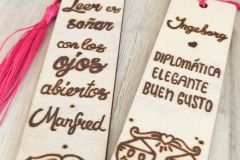 Leer es
soñar
con los
ojos
abiertos
Manfred
Ingeborg
DIPLOMÁTICA
ELEGANTE
BUEN GUSTO